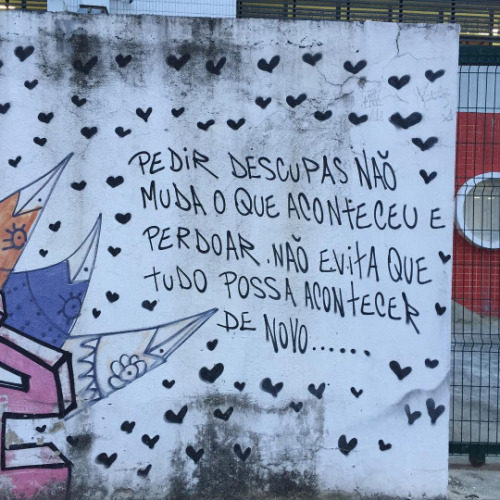 PEDIR DESCUPAS NÃO
MUDA O QUE ACONTECEU E
PERDOAR. NÃO EVITA QUE
TUDO POSSA ACONTECER
DE NOVO......